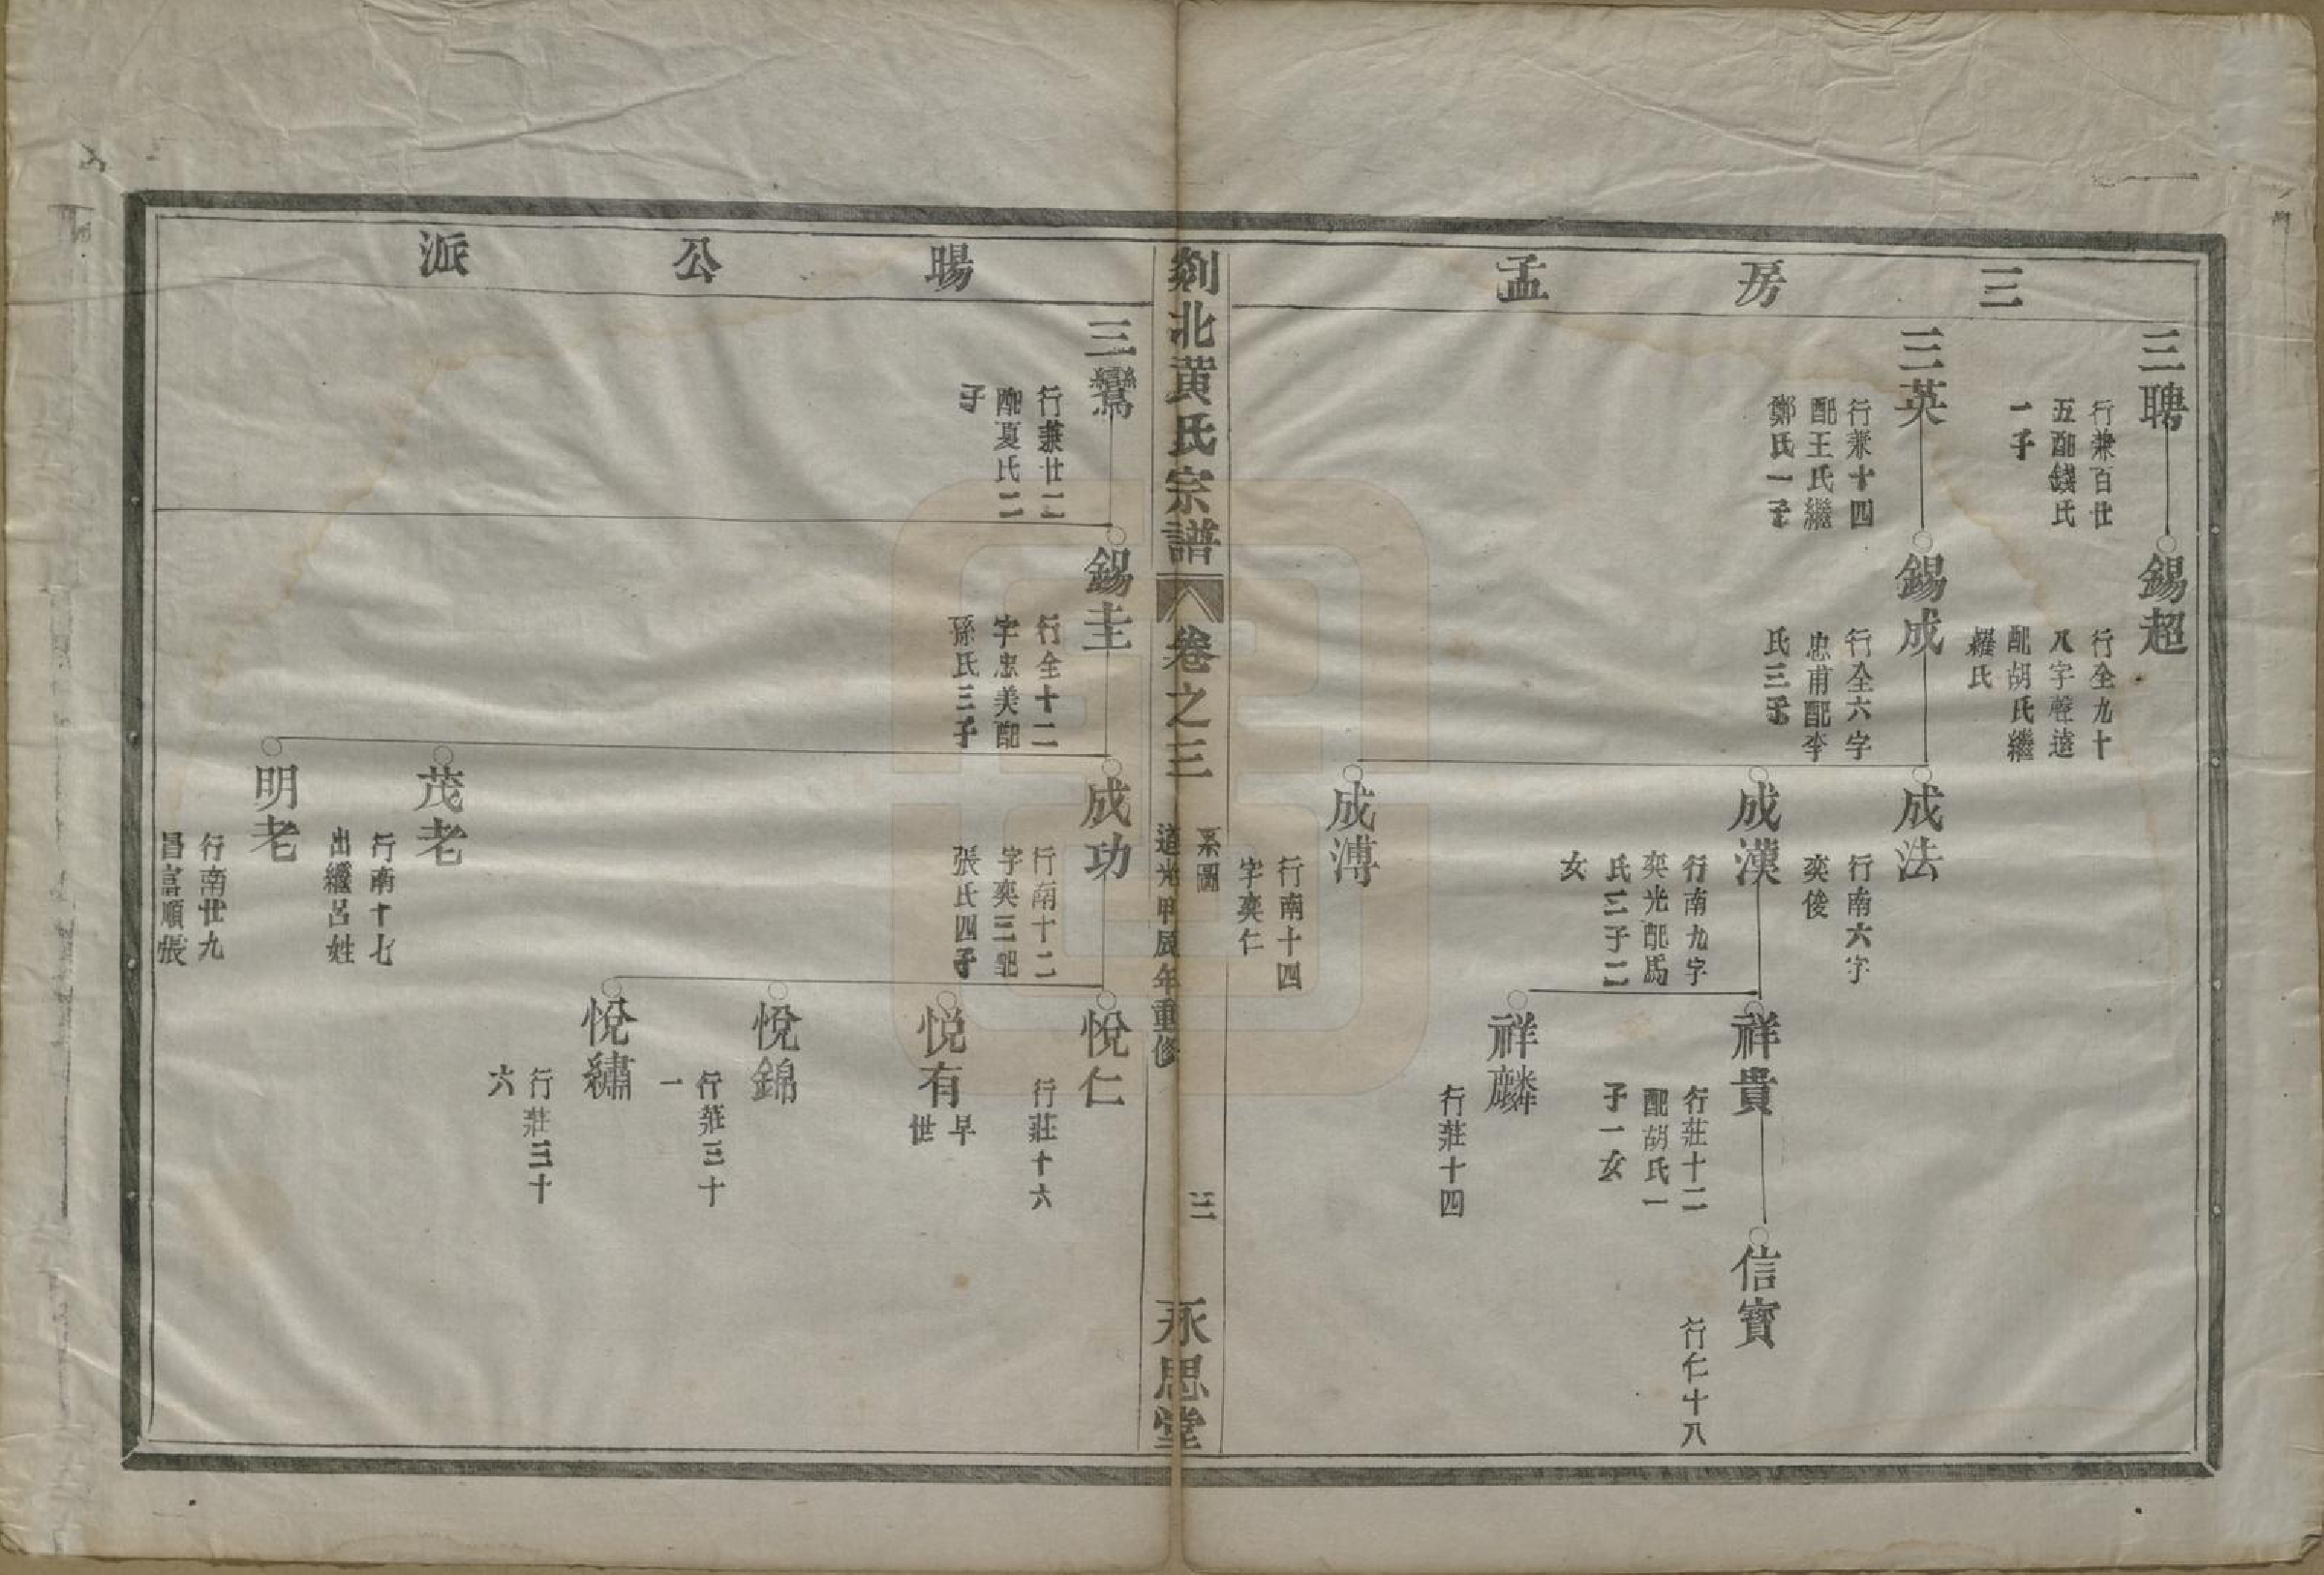 三房孟
三聘
行兼百廿
五配錢氏
一子
錫超
行全九十
八字聲遠
配胡氏繼
羅氏
三英
行兼十四
配王氏繼
鄭氏一子
錫成
行全六字
忠甫配李
氏三子
成法
行南六字
奕俊
成漢
行南九字
奕光配馬
氏二子二
女
祥貴
行莊十二
配胡氏一
子一女
信寶
行仁十八
祥麟
行莊十四
成溥
行南十四
字奕仁
剡北黄氏宗譜
卷之三
系圖
道光甲辰年重修
三
永思堂
暘公派
三鸞
行兼廿二
配夏氏二
子
錫圭
行全十二
字忠美配
孫氏三子
成功
行南十二
字奕三配
張氏四子
悅仁
行莊十六
悅有
早
世
悅錦
行莊三十
一
悅繡
行莊三十
六
茂老
行南十七
出繼呂姓
明老
行南廿九
昌富順張